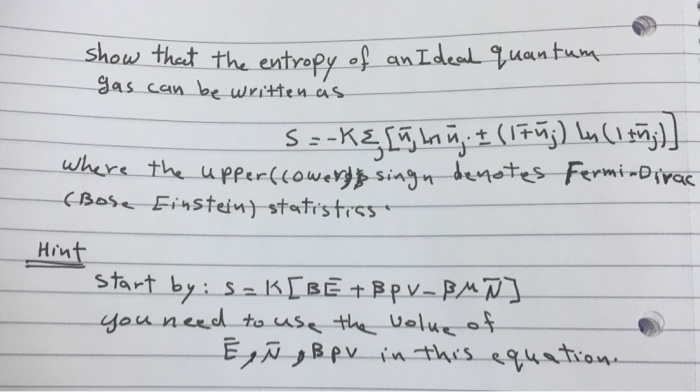 show that the entropy of an Ideal quantum
gas can be written as
S = -K Σ_j [n̄_j ln n̄_j ± (1 ∓ n̄_j) ln (1 ± n̄_j)]
where the upper((cower) singn denotes Fermi-Dirac
(Bose Einstein) statistics.
Hint
start by: S = K [BĒ + BPV - βMN̄]
you need to use the value of
Ē, N̄, BPV in this equation.